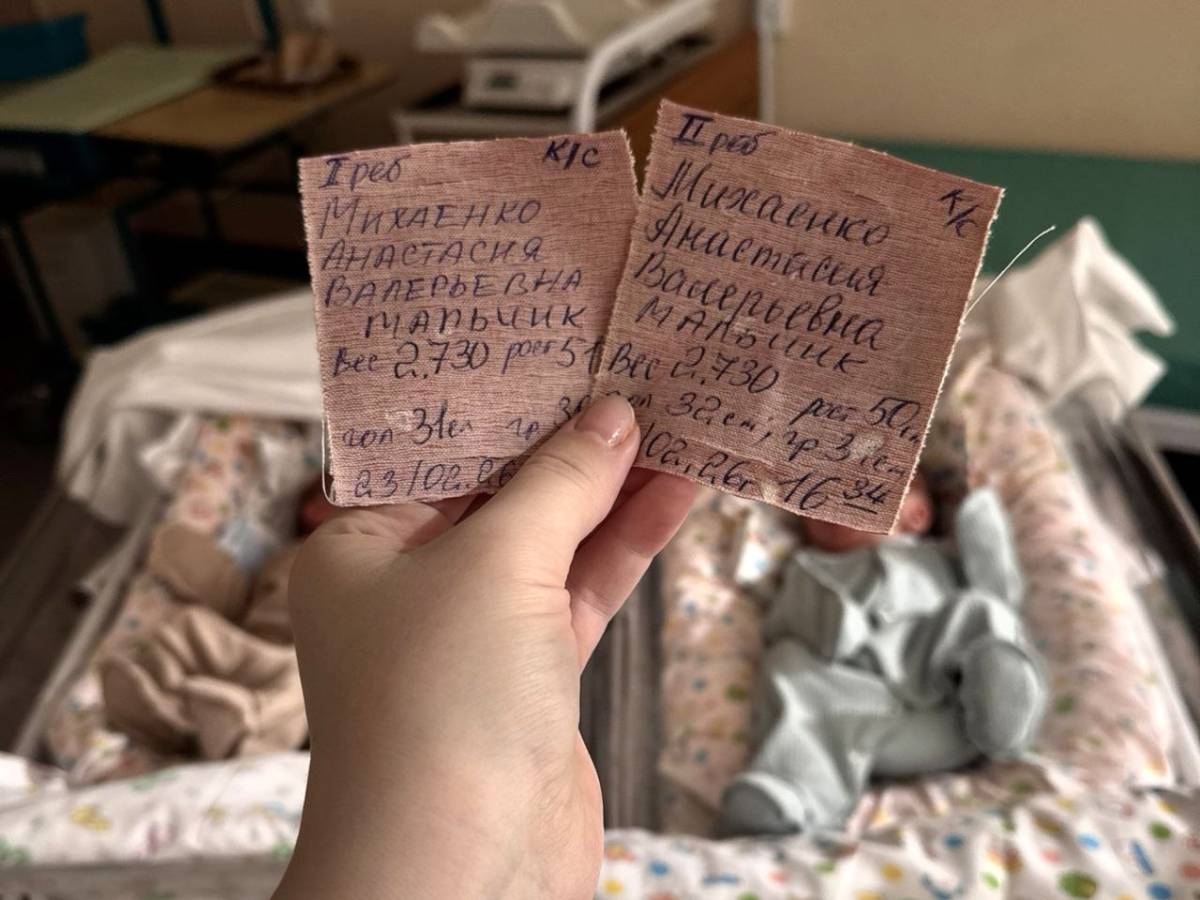 I реб К/С
МИХАЕНКО
АНАСТАСИЯ
ВАЛЕРЬЕВНА
МАЛЬЧИК
Вес 2,730 рост 51
гол 31см гр
23/02.26
II реб К/С
Михаенко
Анастасия
Валерьевна
МАЛЬЧИК
Вес 2,730 рост 50
32см, гр 31см
/02.26г 16 34